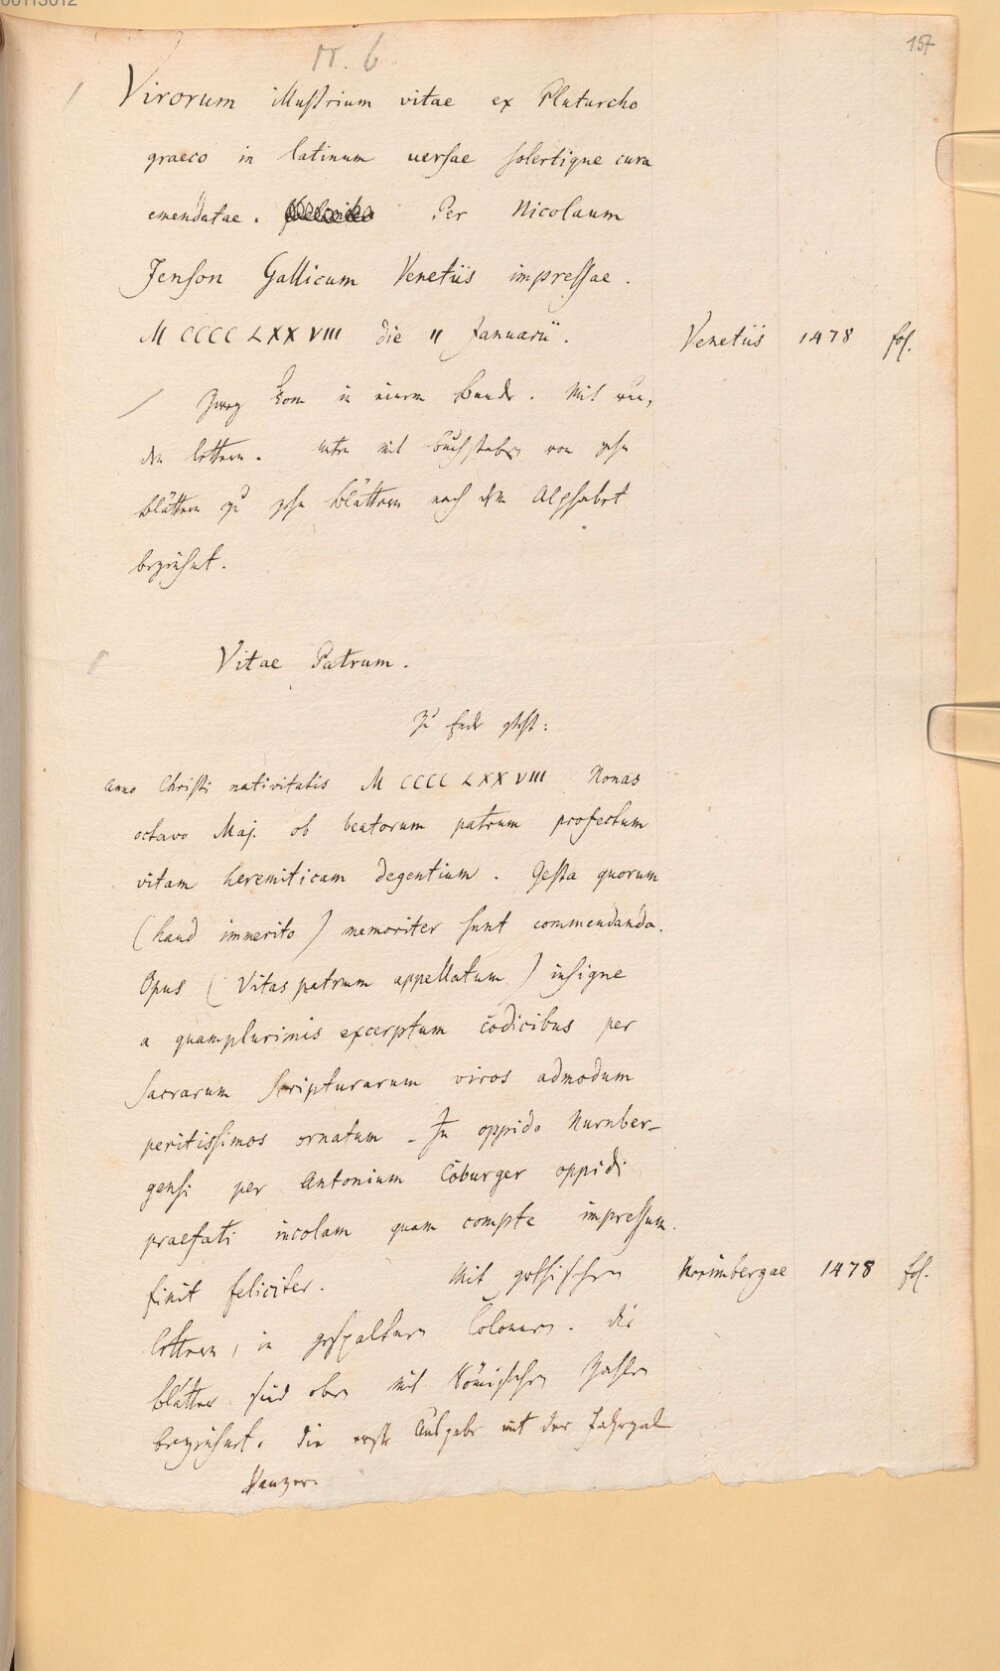 00113012
157
II. 6
Virorum illustrium vitae ex Plutarcho
graeco in latinum uersae solertique cura
emendatae. Per Nicolaum
Jenson Gallicum Venetiis impressae.
M CCCC LXX VIII die 11 Januarii. Venetiis 1478 fol.
Zwey Tom in einem Bande. Mit run,
den Lettern. unten mit Buchstaben von zehn
Blättern zu zehn Blättern nach dem Alphabet
bezeichnet.
Vitae Patrum.
Zu Ende steht:
Anno Christi nativitatis M CCCC LXX VIII Nonas
octavo Maj. ob beatorum patrum profectum
vitam heremiticam degentium. Gesta quorum
(haud immerito) memoriter sunt commendanda.
Opus (Vitas patrum appellatum) insigne
a quamplurimis excerptum codicibus per
sacrarum scripturarum viros admodum
peritissimos ornatum. In oppido Nurnber-
gensi per Antonium Coburger oppidi
praefati incolam quam compte impressum.
finit feliciter. Mit gothischen Norimbergae 1478 fol.
Lettern, in gespaltnen Colonnen. die
Blätter sind oben mit Römischen Zahlen
bezeichnet. die erste Ausgabe mit der Jahrzal
Panzer.